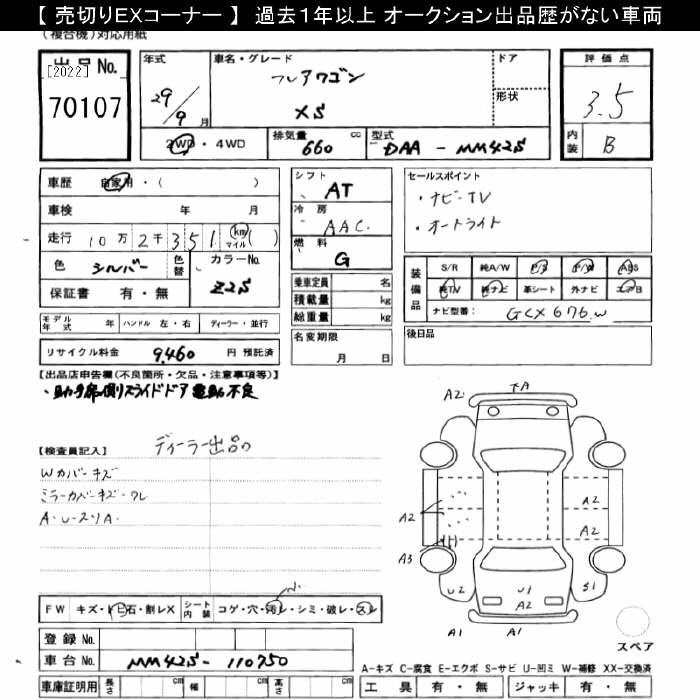 【 売切りEXコーナー 】 過去1年以上 オークション出品歴がない車両
(複合機)対応用紙
出品No.
[2022]
70107
年式
29/9月
車名・グレード
フレアワゴン
XS
ドア
形状
評価点
3.5
内装
B
2WD・4WD
排気量
660 cc
型式
DAA - MM42S
車歴 自家用・( )
車検 年 月
走行 10万2千351 (km マイル)( )
色 シルバー 色替
カラーNo.
Z2S
保証書 有・無
シフト
AT
冷房
AAC
燃料
G
乗車定員 名
積載量 kg
総重量 kg
セールスポイント
・ナビ-TV
・オートライト
装備品
S/R 純A/W P/S P/W ABS
純TV 純ナビ 革シート 外ナビ エアB
ナビ型番: GCX676W
モデル年式 年 ハンドル 左・右 ディーラー・並行
リサイクル料金 9,460 円 預託済
名変期限
月 日
後日品
【出品店申告欄(不良箇所・欠品・注意事項等)】
・助手席側スライドドア電動不良
【検査員記入】 ディーラー出品の
Wカバーキズ
ミラーカバーキズ・ワレ
A・U・スリA.
A2 下A
A2
A2
A2
A3
U2
U1
A2
S1
A1
A1
スペア
FW キズ・トビ石・割レX シート内装 コゲ・穴・汚レ・シミ・破レ・スレ
登録No.
車台No. MM42S-110750
車庫証明用 長さ cm 幅 cm 高さ cm
A-キズ C-腐食 E-エクボ S-サビ U-凹ミ W-補修 XX-交換済
工具 有・無 ジャッキ 有・無